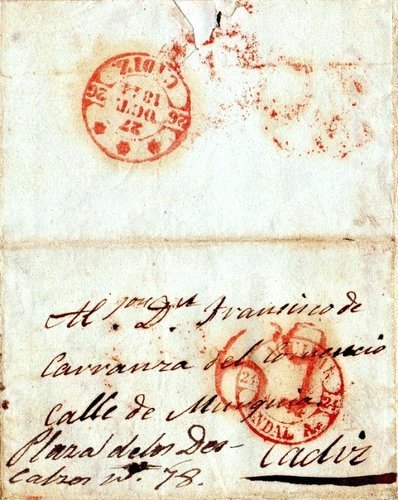 CADIZ
27
OCT.
1844
26 26
Al Sr. Dn. Francisco de
Carranza del Comercio
Calle de Murguia
Plaza de los Des-
calzos nº. 78.
Cadiz
24
24
ANDAL. A.